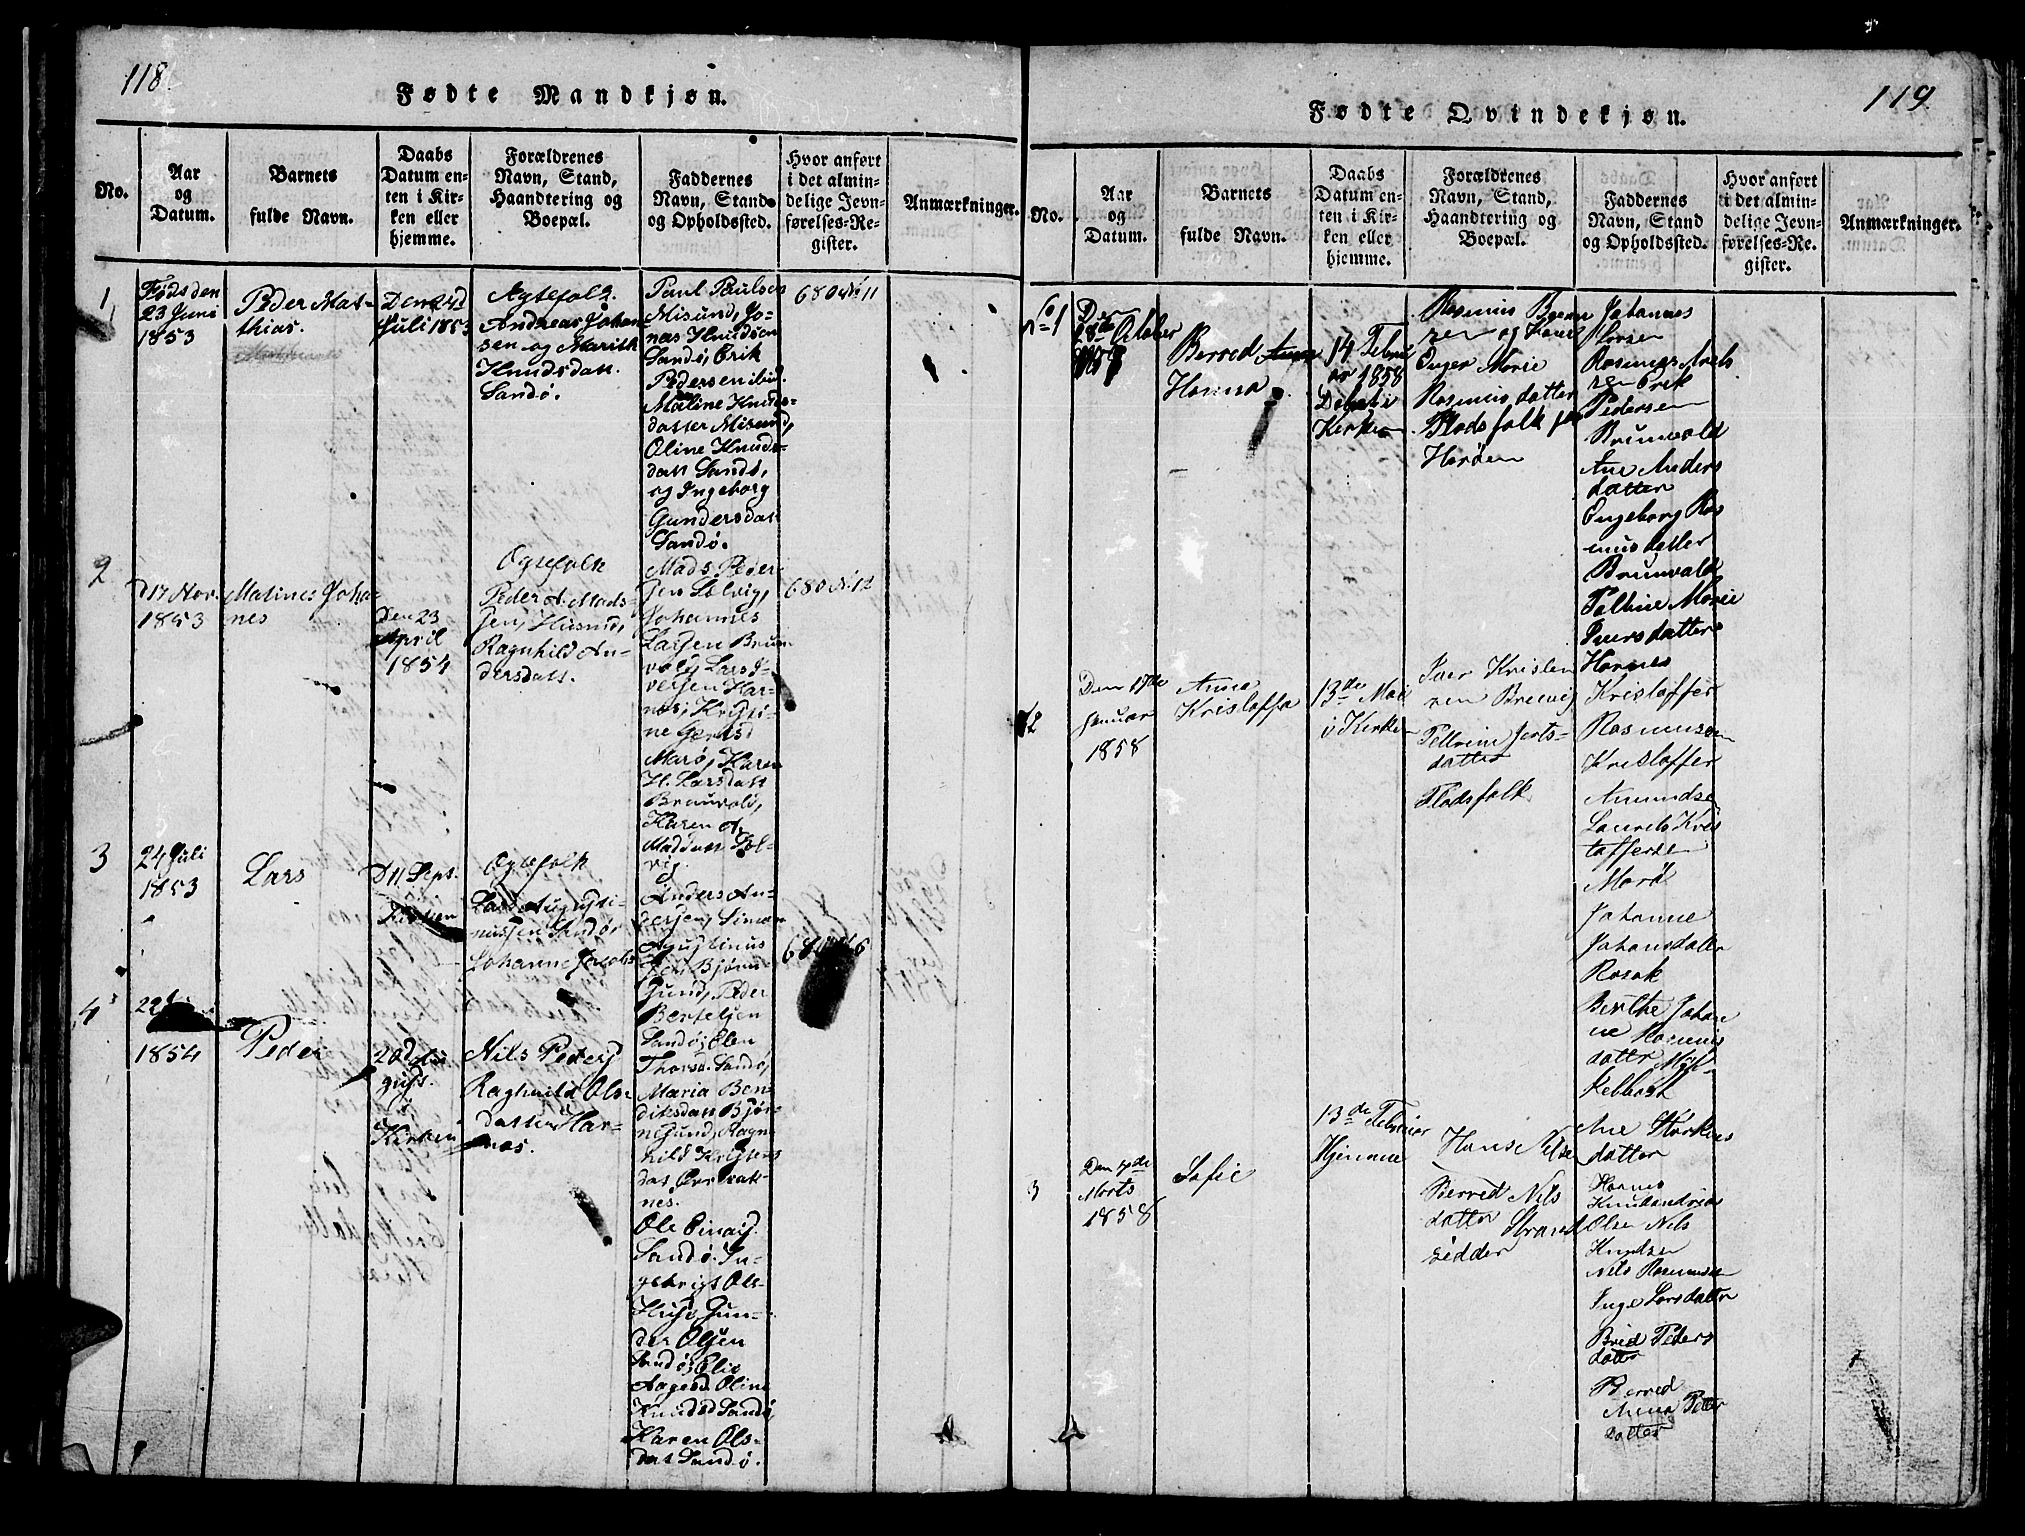 118.
Fødte Mandkjøn.
No.
Aar
og
Datum.
Barnets
fulde Navn.
Daabs
Datum en-
ten i Kir-
ken eller
hjemme.
Forældrenes
Navn, Stand,
Haandtering og
Boepæl.
Faddernes
Navn, Stand
og Opholdssted.
Hvor anført
i det almin-
delige Jevn-
førelses-Re-
gister.
Anmærkninger.
1
Føds den
23 Juni
1853
Peder Mat-
thias.
Den 24d
Juli 1853
Agtefolk.
Andreas Johan-
sen og Marith
Knudsdatt.
Sandø.
Paul Paulsen
Misund, Jo-
nas Knudsen
Sandø, Erik
Pedersen ibid.
Maline Knuds-
datter Misund,
Oline Knuds-
datt Sandø,
og Ingeborg
Gundersdatt
Sandø.
680 № 11
2
d 17 Nov.
1853
Matines Joha-
nes
Den 23
April
1854
Ogtefolk
Peder A. Mads-
sen, Husmd,
Ragnhild An-
dersdatt.
Mads Peder-
sen Solvig,
Johannes
Larsen Brun-
vold, Lars I-
versen Har-
nes, Kristi-
ne Gertsd
Marø, Karen
H. Larsdatt
Brunvold,
Karen A.
Madsdatt Sol-
vig.
680 N. 12
3
24 Juli
1853
Lars
D 11 Sept.
Kirken
Ogtefolk
Lars Augusti-
nussen Sandø,
Johanne Jacobs
Anders An-
dersen, Simon
Agustinus
sen Bjørne
Sund, Peder
Bertelsen
Sandø, Elen
Thorsd. Sandø,
Maria Ben
diksdatt Bjør-
nesund, Ragn
hild Kristens
dat
nes.
4
1854
Peder
20d Au
gust.
i
Kirken
Nils Peders
Ragnhild Ols-
datter Har-
nes.
Ole Einars.
Sandø. In-
gebrigt Ols-
Husø, Gun-
der Olsen
Sandø, Elie
Aagesd. Oline
Knudsd Sandø,
Karen Ols-
dat Sandø.
119
Fødte Qvindekjøn.
No.
Aar
og
Datum.
Barnets
fulde Navn.
Daabs
Datum en-
ten i Kir-
ken eller
hjemme.
Forældrenes
Navn, Stand,
Haandtering og
Boepæl.
Faddernes
Navn, Stand
og Opholdssted.
Hvor anført
i det almin-
delige Jevn-
førelses-Re-
gister.
Anmærkninger.
No 1
Den
28de Octaber
Berred Anna
Hanna
14 Febru
ar 1858
Døbt i
Kirken
Rasmus
og Kone
Inger Marie
Rasmusdatter
Pladsfolk paa
Harøen
Johannes
Rasmus
sen Erik
Pedersen
Brunvold
Ane Anders
datter
Ingeborg Ras
musdatter
Brunvald
Pattine Marie
Iversdatter
Harnes
2
Den 17de
Januar
1858
Anna
Kristaffa
13de Mai
i Kirken
Iver Kristen
sen Brevig
Pettrine Jerts-
datter
Pladsfolk
Kristaffer
Rasmusen
Kristaffer
Amundsen
Laurits Kris
taffersen
Marø
Johanne
Johansdatter
Rosok
Berthe Johan
ne Rasmus
datter Myk-
kelbost
3
Den 4de
Marts
1858
Sofie
13de Februar
Hjemme
Hans Nilse
Berred Nils
datter Strand
sedder
Ane Storkens
datter
Harnes
Knudandreas
Olse Nils
Knudsen
Nils Rasmusen
Inge Larsdatter
Bred Peders
datter
Berred
Anna Petter
datter